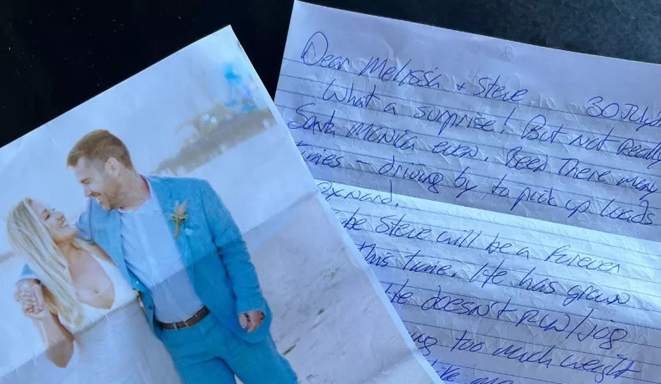 Dear Melissa + Steve 30 July
What a surprise! But not really
Santa Monica even. Been there many
times - driving by to pick up loads
be Steve will be a forever
this time. Life has grown
doesn't run/jog
too much weight